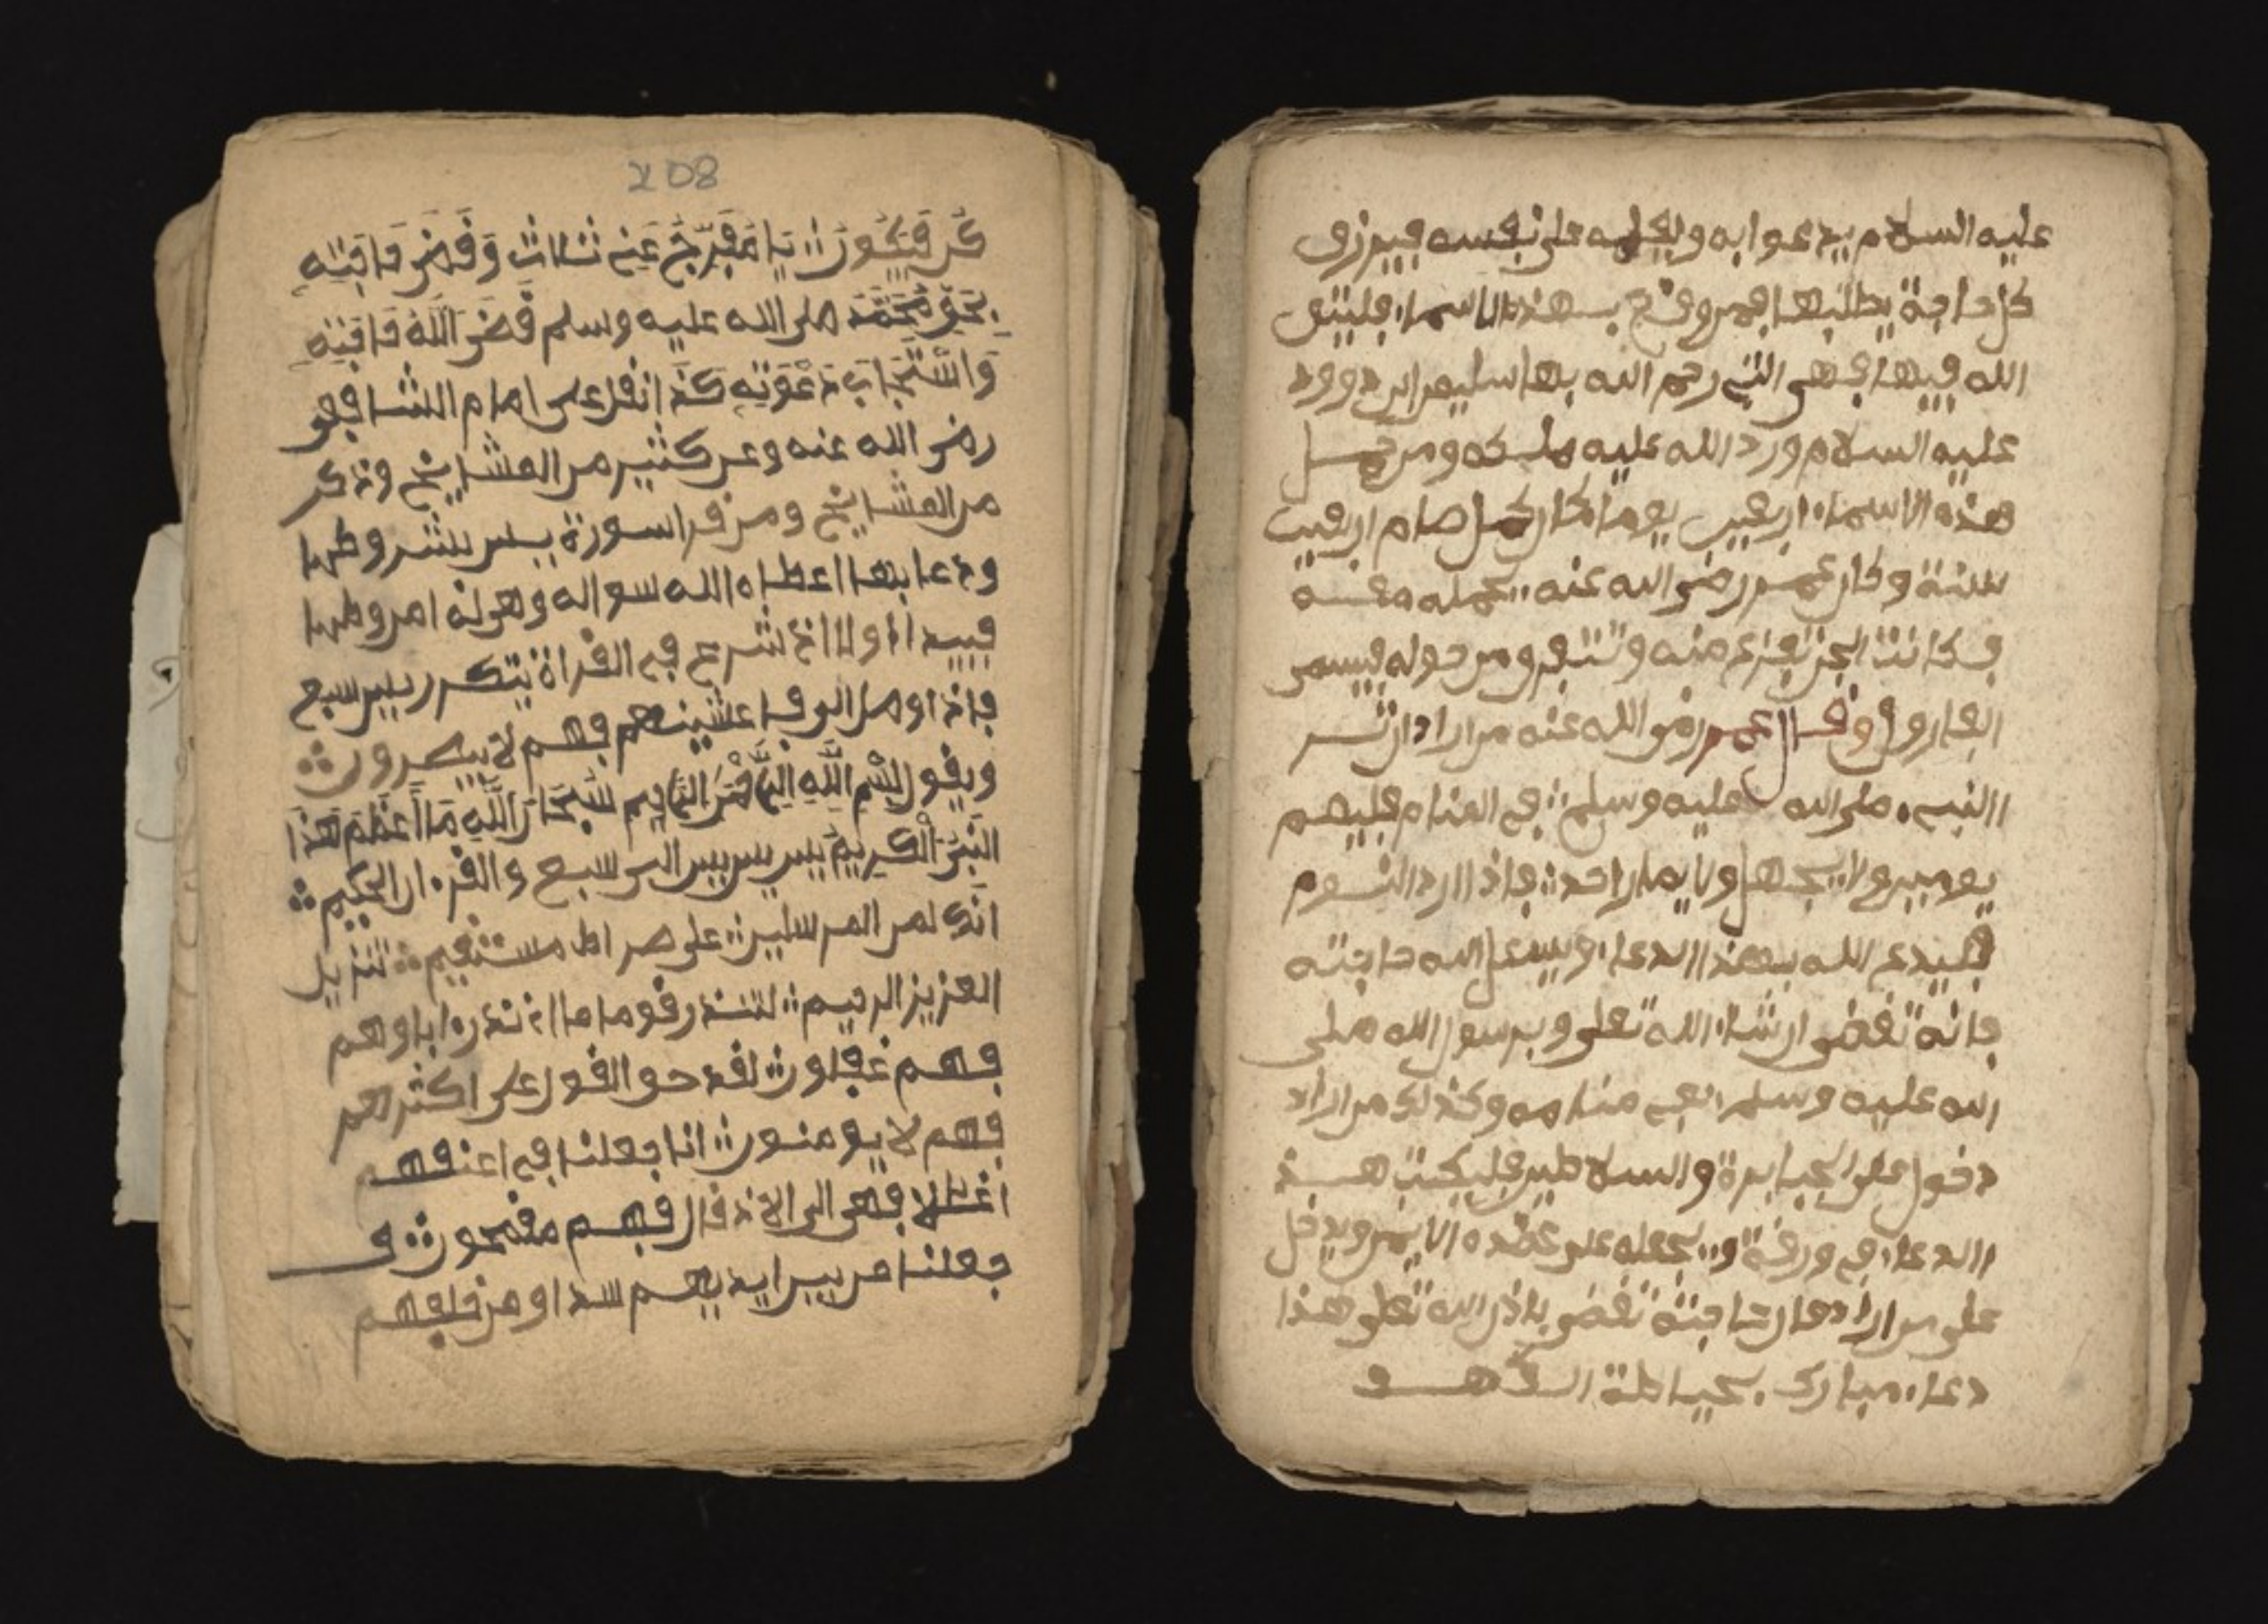 عليه السلام يدعوا به ويفعله على نفسه فيرزق
كل حاجة يطلبها فمر وقع بهذه الاسماء فليتق
الله فيها فهى التي رحم الله بها سليمن ابن داوود
عليه السلام ورد الله عليه ملكه ومن حمل
هذه الاسماء اربعين يوما فكان كمل صام اربعين
سنة وكان عمر رضى الله عنه يحمله معه
فكانت الجن تفزع منه وتتفرو من حوله فيسمى
الفاروق وقال عمر رضى الله عنه من اراد ان
النبي صلى الله عليه وسلم في المنام فليصم
يومين ولا احد فاذا اراد النوم
فليدع الله بهذا الدعاء ويسئل الله حاجته
فانه تقضى ان شاء الله تعلى وير رسول الله صلى
الله عليه وسلم في منامه وكذلك من اراد
دخول على الجبابرة والسلاطين فليكتب هذ
االدعاء في ورقة ويجعله على عضده الايمن ويدخل
على من اراد فان حاجته تقضى باذن الله تعلى هذا
دعاء مبارك
208
كن فيكون يا مفرج عني ثلاث وقض حاجته
بحق محمد صلى الله عليه وسلم قضى الله حاجته
واستجاب دعوته كذا نقل عن امام الشافعي
رضى الله عنه وعن كثير من المشايخ وذكر
من المشايخ ومن قرا سورة يس بشروطها
ودعا بها اعطاه الله سواله وهوله امروطها
فيبدا اولا اذ شرع في القراة يتكرر يس سبع
فاذا وصل الى فاغشينهم فهم لا يبصرون
ويقول بسم الله الرحمن الرحيم سبحان الله ما اعظم هذا
النبى الكريم يس يس يس الى سبع والقرءان الحكيم
انك لمن المرسلين على صراط مستقيم تنزيل
العزيز الرحيم لتنذر قوما ما انذر ءاباوهم
فهم غفلون لقد حق القول على اكثرهم
فهم لا يومنون انا جعلنا في اعنقهم
اغللا فهى الى الاذقان فهم مقمحون و
جعلنا من بين ايديهم سدا ومن خلفهم